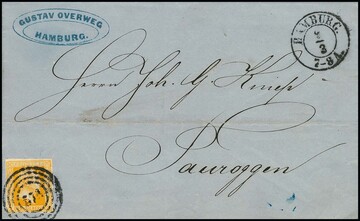 GUSTAV OVERWEG
HAMBURG.
HAMBURG.
3
7-8
Herrn Joh. G.
Tauroggen